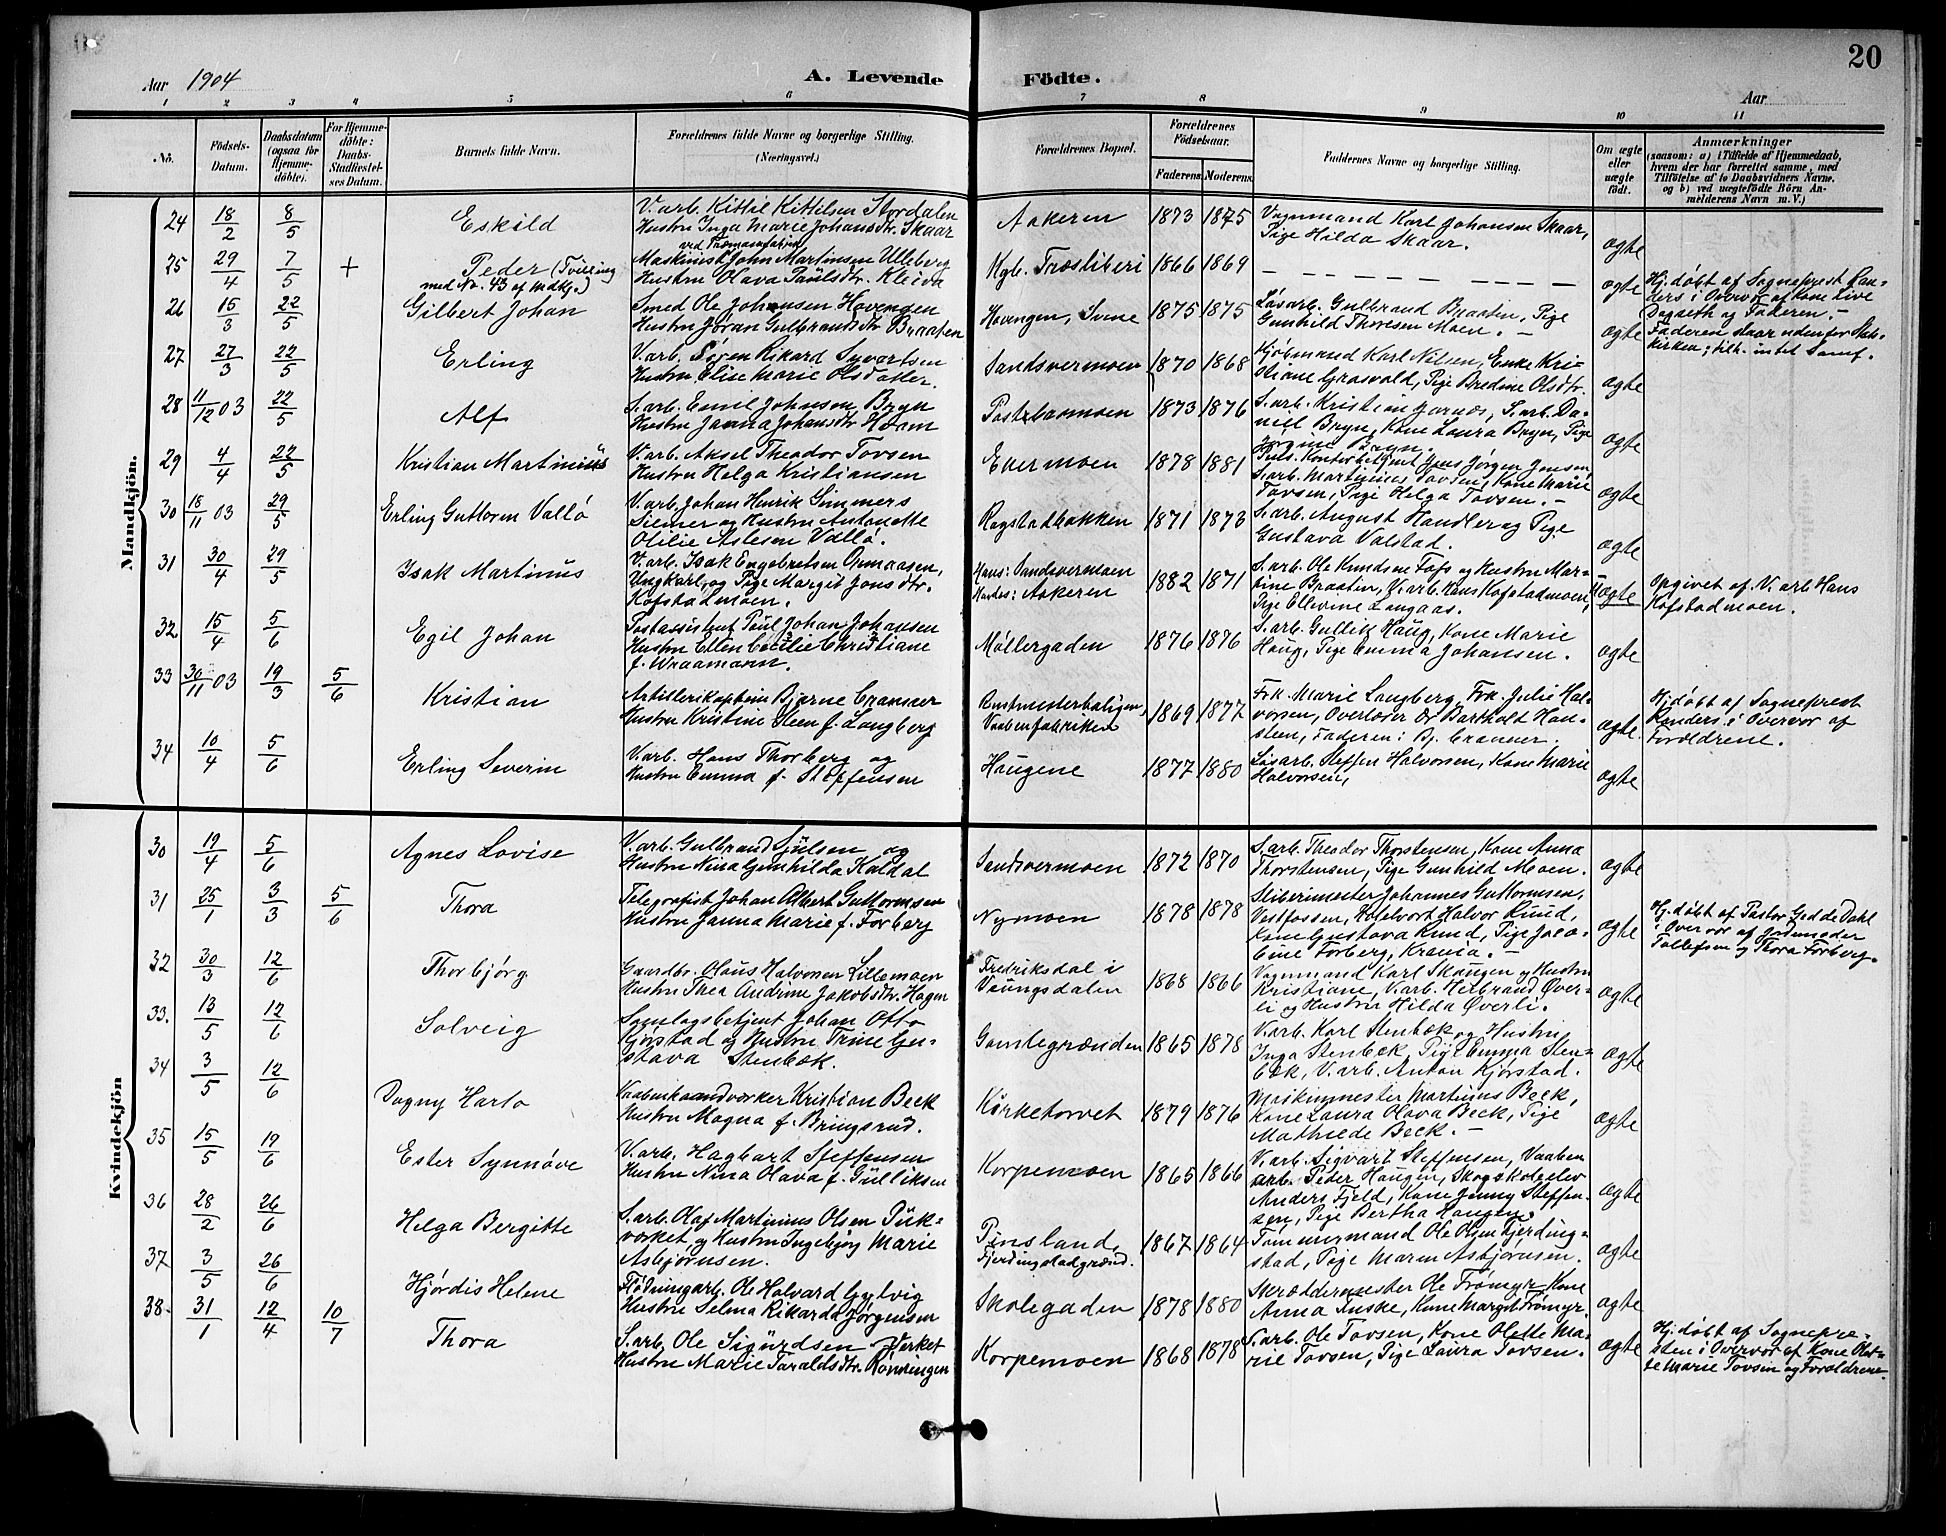 20
Aar 1904
A. Levende Födte.
Aar
1 2 3 4 5 6 7 8 9 10 11
No.
Födsels-Datum.
Daabsdatum (ogsaa for Hjemme-döbte).
For Hjemme-döbte: Daabs-Stadfæstel-ses Datum.
Barnets fulde Navn.
Forældrenes fulde Navne og borgerlige Stilling. (Næringsvei.)
Forældrenes Bopæl.
Forældrenes Födselsaar.
Faderens
Moderens
Faddernes Navne og borgerlige Stilling.
Om ægte eller uægte födt.
Anmærkninger
(saasom: a) i Tilfælde af Hjemmedaab,
hvem der har forrettet samme, med
Tilföielse af to Daabsvidners Navne,
og b) ved uægtefödte Börn An-
melderens Navn m. V.)
Mandkjön.
24 18/2 8/5 Eskild
V.arb. Kittil Kittilsen Stordalen
Hustru Inga Marie Johansdtr. Skaar
Aakeren 1873 1875
Vognmand Karl Johansen Skaar,
Pige Hilda Skaar.
ægte
25 29/4 7/5 + Peder (Tvilling
med No. 43 af mdkj.)
Maskinist John Martinsen Ulleberg
Hustru Olava Paulsdtr. Kleiva
Kgb. Træsliberi 1866 1869
— — — — — — — —
ægte
Hj.døbt af Sogneprest San-
ders i Overvær af Kone Live
Dagseth og Faderen. —
26 15/3 22/5 Gilbert Johan
Smed Ole Johansen Hovengen
Hustru Jöran Gulbrandsdtr Braaten
Hovengen, Svene 1875 1875
Løsarb. Gulbrand Braaten, Pige
Gunhild Thoresen Moen. —
ægte
Faderen staar udenfor Stats-
kirken; tilh. intet Samf.
27 27/3 22/5 Erling
V.arb. Søren Rikard Syvertsen
Hustru Elise Marie Olsdatter.
Sandsvermoen 1870 1868
Kjøbmand Karl Nilsen, Enke Kri-
stiane Grosvold, Pige Bredine Olsdtr.
ægte
28 11/12 03 22/5 Alf
S.arb. Emil Johnsen Bryn
Hustru Janna Johansdtr Hørm
1873 1876
S.arb. Kristian Jarnæs, S.arb. Da-
niel Bryn, Kone Laura Bryn, Pige
Jørgine Bryn.
ægte
29 4/4 22/5 Kristian Martinius
V.arb. Aksel Theodor Tovsen
Hustru Helga Kristiansen
Evermoen 1878 1881
Puls. Kontorbetjent Jens Jørgen Jensen,
S.arb. Martinius Tovsen, Kone Marie
Tovsen, Pige Helga Tovsen. —
ægte
30 18/11 03 29/5 Erling Guttorm Vallö
V.arb. Johan Henrik Simmers
Siemer og Hustru Antonette
Otilie Aslesen Vallö.
Rogstadbakken 1871 1873
S.arb. August Handler og Pige
Gustava Valstad.
ægte
31 30/4 29/5 Isak Martinus
V.arb. Isak Engebretsen Opmaasen,
Ungkarl, og Pige Margit Jonsdtr.
Kofstadmoen.
Hans: Sandsvermoen
Hendes: Aakeren
1882 1871
S.arb. Ole Knudsen Fofs og Hustru Mar-
tine Braaten, V.arb. Hans Kofstadmoen,
Pige Ellevine Langaas.
uægte
Opgivet af V.arb Hans
Kofstadmoen.
32 15/4 5/6 Egil Johan
Postassistent Paul Johan Johansen
Hustru Ellen Cecilie Christiane
f. Wraamann.
Møllergaden 1876 1876
S.arb. Gullik Haug, Kone Marie
Haug, Pige Emma Johansen.
ægte
33 30/11 03 19/3 5/6 Kristian
Artillerikaptein Bjarne Cranner
Hustru Kristine Steen f. Langberg
Rustmesterboligen,
Vaabenfabriken
1869 1877
Frk. Marie Langberg, Frk. Julie Hal-
vorsen, Overlærer Dr Bartholt Han-
steen, Faderen: Bj. Cranner.
ægte.
Hj.døbt af Sogneprest
Sanders i Overvær af
Forældrene.
34 10/4 5/6 Erling Severin
V.arb. Hans Thorberg og
Hustru Emma f. Steffensen
Haugene 1877 1880
Løsarb. Steffen Halvorsen, Kone Marie
Halvorsen,
ægte
Kvindekjön
30 19/4 5/6 Agnes Lovise
V.arb. Gulbrand Sjulsen og
Hustru Nina Gunhilda Kaldal
Sandsvermoen 1872 1870
S.arb. Theodor Thorstensen, Kone Anna
Thorstensen, Pige Gunhild Moen.
ægte
31 25/1 3/3 5/6 Thora
Telegrafist Johan Albert Guttormsen
Hustru Janna Marie f. Forberg
Nymoen 1878 1878
Sliberimester Johannes Guttormsen,
Vestfossen, Kølelvort Halvor Ruud,
Kone Gustava Ruud, Pige Jaco-
bine Forberg, Krania. —
ægte
Hj.døbt af Pastor Gedde Dahl
i Overvær af Jordmoder
Tollefsen og Thora Forberg.
32 30/3 12/6 Thorbjørg
Gaardbr. Olaus Halvorsen Lillemoen
Hustru Thea Andrine Jakobsdtr. Hagen
Fredriksdal i
Veungsdalen
1868 1866
Vognmand Karl Skaugen og Hustru
Kristiane, V.arb. Herbrand Øver-
li og Hustru Hilda Øverli.
ægte
33. 13/5 12/6 Solveig
Samlagsbetjent Johan Otto
Kjørstad og Hustru Trine Gu-
stava Stenbæk.
Gamlegrænden 1865 1878
V.arb. Karl Stenbæk og Hustru
Inga Stenbæk, Pige Emma Sten-
bæk, V.arb. Anton Kjørstad.
ægte
34 3/5 12/6 Dagny Harto
Vaabenhaandværker Kristian Beck
Hustru Magna f. Bringsrud.
Kirketorvet 1879 1876
Maskinmester Martinus Beck,
Kone Laura Olava Beck, Pige
Mathilde Beck. —
ægte
35 15/5 19/6 Ester Synnöve
V.arb. Hagbart Steffensen
Hustru Nina Olava f. Gulliksen
Korpemoen 1865 1866
V.arb. Sigvart Steffensen, Vaaben
arb. Peder Haugen, Skogskoleelev
Anders Fjeld, Kone Jenny Steffen-
sen, Pige Bertha Haugen.
ægte
36 28/2 26/6 Helga Bergitte
S.arb. Olaf Martinius Olsen Puk-
værket og Hustru Ingebjørg Marie
Asbjørnsen.
Pinsland,
Fjerdingstadgrænd.
1867 1864
Tømmermand Ole Olsen Fjerding-
stad, Pige Maren Asbjørnsen.
ægte
37 3/5 26/6 Hjørdis Helene
Flødningarb. Ole Halvard Gytvig
Hustru Selma Rikarda Jørgensen
Skolegaden 1878 1880
Skræddermester Ole Frømyr, Kone
Anna Tuske, Kone Margit Frømyr
ægte
38. 31/1 12/4 10/7 Thora
S.arb. Ole Sigurdsen Verket
Hustru Marie Taraldsdtr. Rønningen
Korpemoen 1868 1878
S.arb. Ole Tovsen, Kone Olette Ma-
rie Tovsen, Pige Laura Tovsen.
ægte
Hj.døbt af Sognepre-
sten i Overvær af Kone Olet-
te Marie Tovsen og Forældrene.